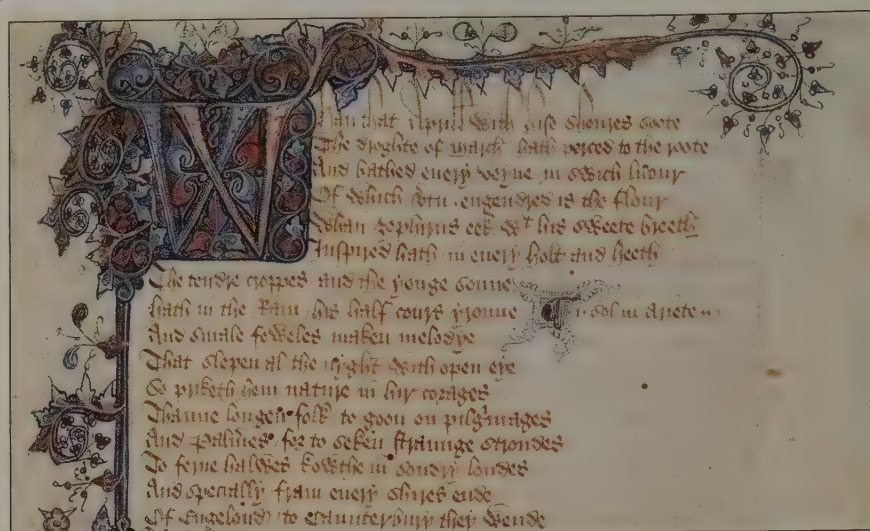 Whan that Aprill with hise shoures soote
The droghte of march hath perced to the roote
And bathed every veyne in swich licour
Of which vtu engendred is the flour
Whan zephirus eek wt his sweete breeth
Inspired hath in every holt and heeth
The tendre croppes and the yonge sonne
hath in the Ram his half cours yronne
And smale foweles maken melodye
That slepen al the nyght with open eye
So priketh hem nature in hir corages
Thanne longen folk to goon on pilgrimages
And Palmeres for to seken straunge strondes
To ferne halwes kowthe in sondry londes
And specially fram every shires ende
Of Engelond to Caunterbury they wende
sol in ariete